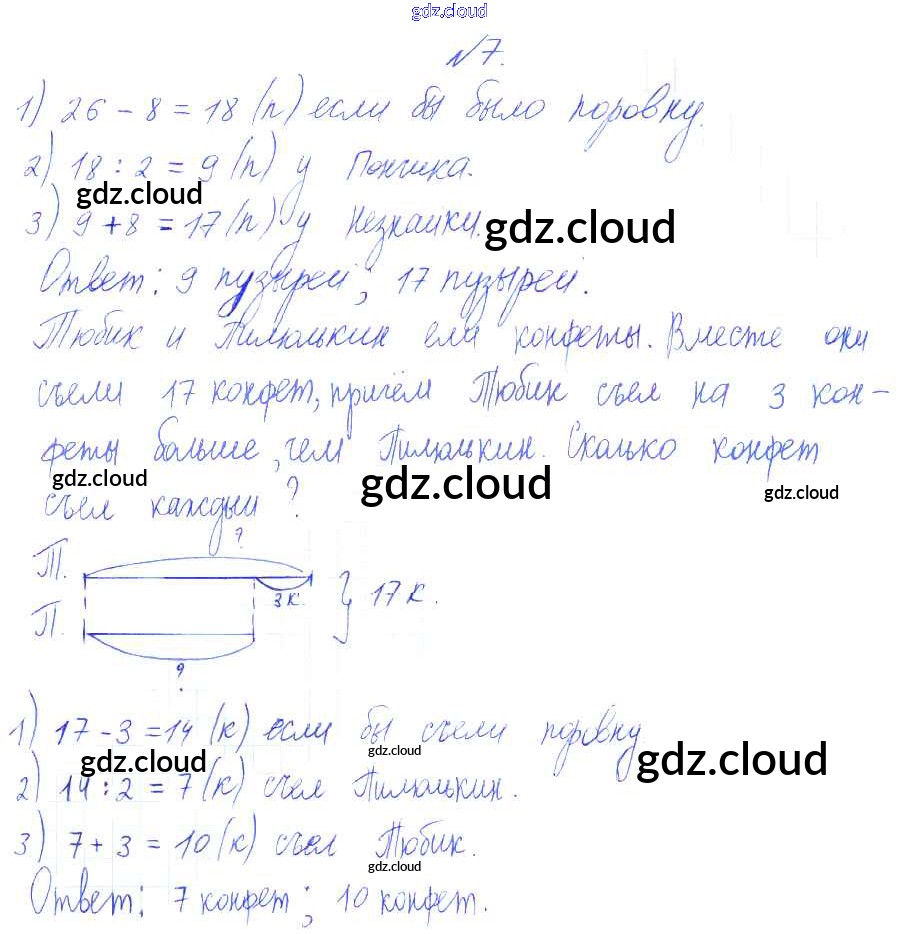 gdz.cloud
№7.
1) 26 - 8 = 18 (п) если бы было поровну.
2) 18 : 2 = 9 (п) у Пончика.
gdz.cloud
3) 9 + 8 = 17 (п) у Незнайки.
gdz.cloud
Ответ: 9 пузырей; 17 пузырей.
Тюбик и Пилюлькин ели конфеты. Вместе они
съели 17 конфет, причём Тюбик съел на 3 кон-
феты больше, чем Пилюлькин. Сколько конфет
gdz.cloud gdz.cloud gdz.cloud
съел каждый ?
?
Т.
3 к. } 17 к.
П.
?
1) 17 - 3 = 14 (к) если бы съели поровну
gdz.cloud gdz.cloud gdz.cloud
2) 14 : 2 = 7 (к) съел Пилюлькин.
3) 7 + 3 = 10 (к) съел Тюбик.
gdz.cloud
Ответ: 7 конфет; 10 конфет.